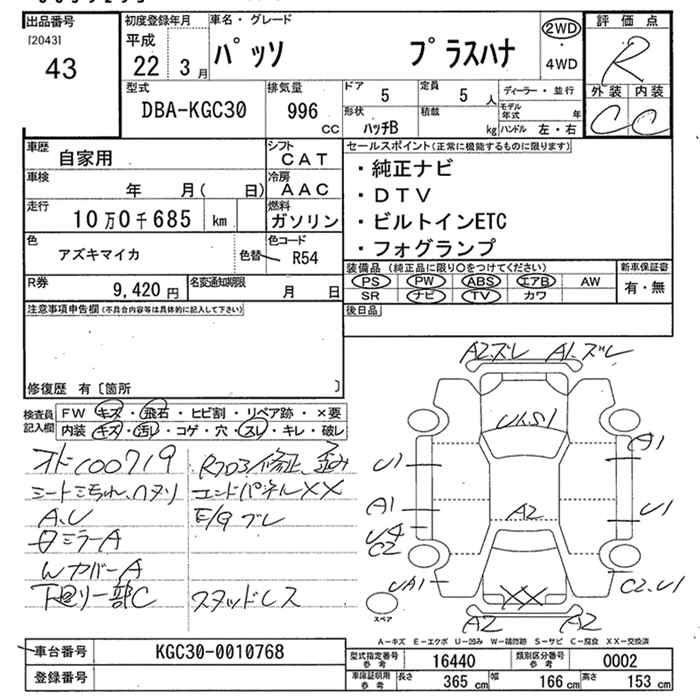 出品番号
[2043]
43
初度登録年月
平成
22 3月
車名・グレード
パッソ プラスハナ
2WD
4WD
評価点
R
外装 内装
C C
型式
DBA-KGC30
排気量
996
CC
ドア 5
定員 5 人
形状 ハッチB
積載 kg
ディーラー・並行
モデル年式 年
ハンドル 左・右
車歴 自家用
シフト CAT
車検 年 月( 日)
冷房 AAC
走行 10万0千685 km
燃料 ガソリン
色 アズキマイカ 色替
色コード R54
R券 9,420 円
名変通知期限 月 日
セールスポイント(正常に機能するものに限ります)
・純正ナビ
・DTV
・ビルトインETC
・フォグランプ
装備品(純正品に限り○をつけてください)
PS PW ABS エアB AW
SR ナビ TV カワ
新車保証書
有・無
後日品
注意事項申告欄(不具合内容等は具体的に記入して下さい)
修復歴 有〔箇所 〕
検査員記入欄
FW キズ・飛石・ヒビ割・リペア跡・×要
内装 キズ・汚レ・コゲ・穴・スレ・キレ・破レ
A.U
ミラーA
WカバーA
下回リ一部C
エンドパネルXX
E/gブレ
スタッドレス
A2.ズレ A1.ズレ
U1.S1
U1 A1
A1 A2 U1
C2
UA1 XX C2.U1
A2 A2
スペア
A-キズ E-エクボ U-凹み W-補修跡 S-サビ C-腐食 XX-交換済
車台番号 KGC30-0010768
登録番号
型式指定番号 参考 16440
類別区分番号 参考 0002
車庫証明用 参考 長さ 365 cm 幅 166 cm 高さ 153 cm